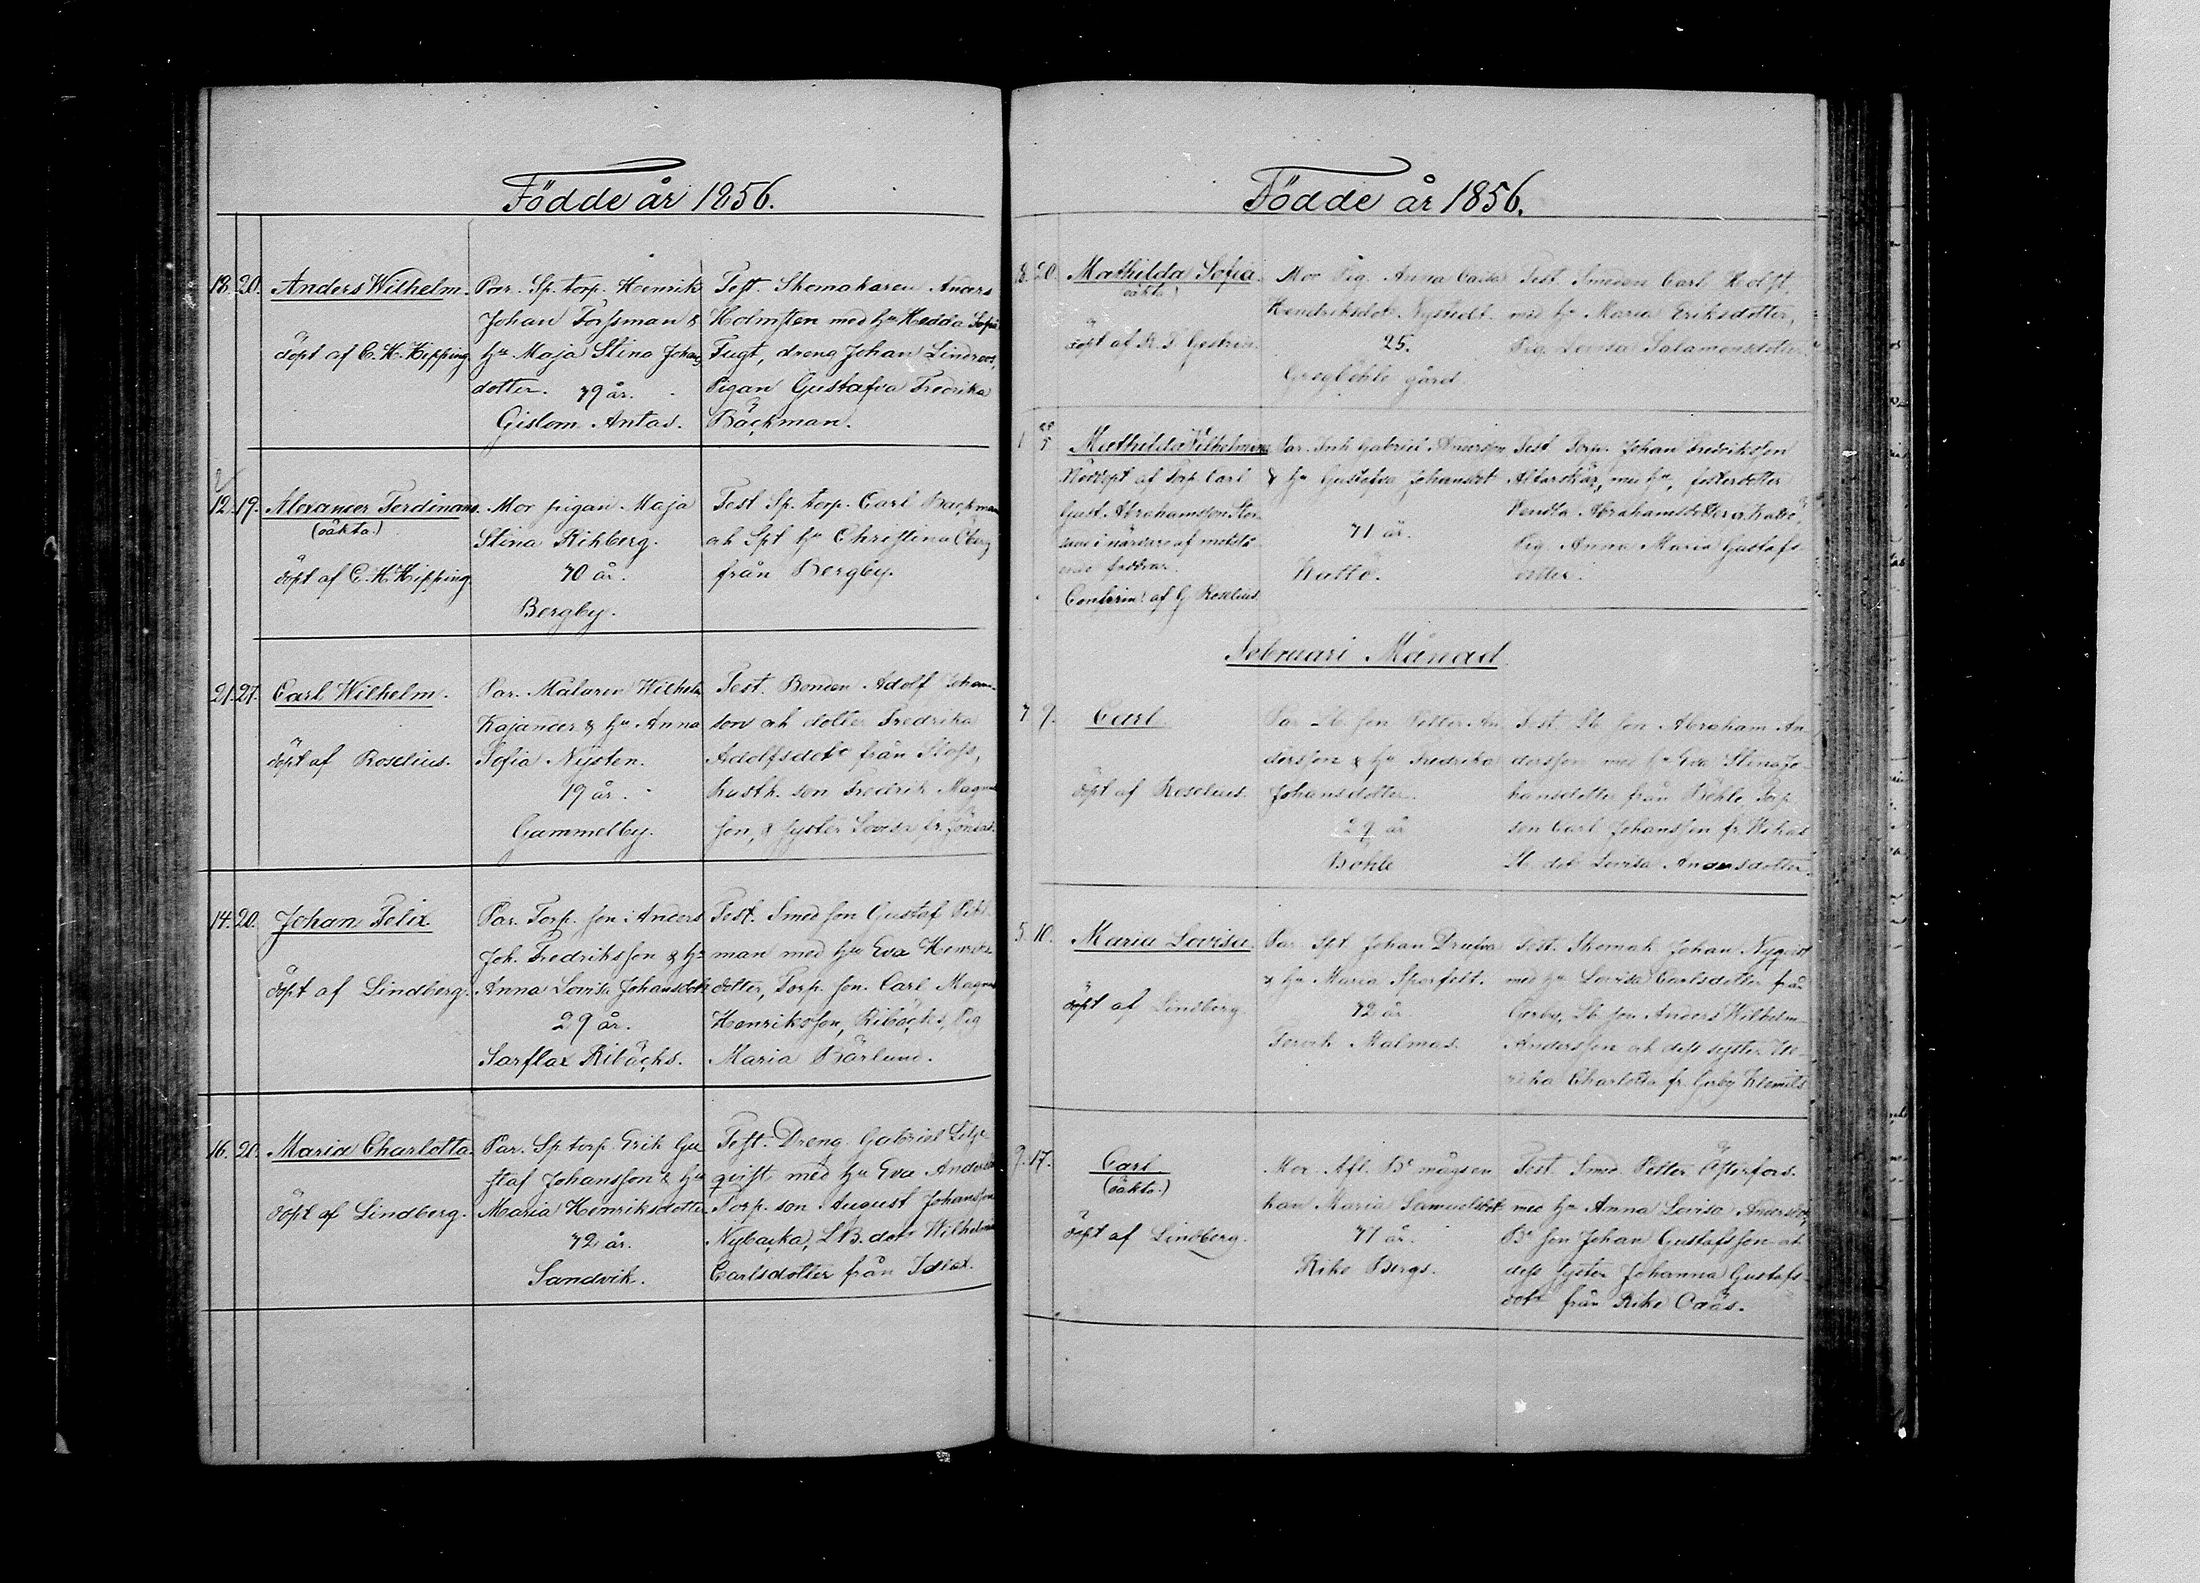 Födde år 1856.
18. 20. Anders Wilhelm.
döpt af C. H. Hipping
Par. Sp. torp. Henrik
Johan Forssman &
hu Maja Stina Johans
dotter. 39 år.
Gislom Antas.
Test. Skomakaren Anders
Holmsten med hu Hedda Sofia
Fugt, dreng Johan Lindroos,
Pigan Gustafva Fredrika
Bäckman.
12. 19. Alexander Ferdinand.
(oäkta.)
döpt af C. H. Hipping
Mor pigan Maja
Stina Rihberg.
30 år.
Bergby.
Test Sp. torp. Carl Backman
och Spt hu Christina Öberg
från Bergby.
21. 27. Carl Wilhelm.
döpt af Roselius.
Par. Målaren Wilhelm
Kajander & hu Anna
Sofia Nysten.
19 år.
Gammelby.
Test. Bonden Adolf Johans-
son och dotter Fredrika
Adolfsdotr från
husth. son Fredrik Magns
son, & syster Lovisa fr.
14. 20. Johan Felix
döpt af Lindberg.
Par. Torp. son Anders
Joh. Fredriksson & hu
Anna Lovisa Johansdotr
29 år.
Sarflax Ribäcks.
Test. Smed son Gustaf
man med hu Eva Henriks
dotter, Torp. son. Carl Magns
Henriksson, Ribäcks, Pig
Maria Bärlund.
16. 20. Maria Charlotta.
döpt af Lindberg.
Par. Sp torp. Erik Gu
staf Johansson & hu
Maria Henriksdotter
32 år.
Sandvik.
Test. Dreng. Gabriel Lilje
quist med hu Eva
Torp. son August Johansson
Nybacka, L. B. dotr Wilhelmina
Carlsdotter från Islax.
Födde år 1856.
8. 20. Mathilda Sofia.
(oäkta)
döpt af Gestrin.
Mor Pig. Anna Caisa
Hendriksdotr Nystedt.
25.
Gregböhle gård.
Test Smeden Carl Holst,
med hu Maria Eriksdotter,
Pig. Lovisa Salamonsdotter.
1 5 Mathilda Wilhelmina
Nöddöpt af Torp. Carl
Gust. Abrahamsson
i närvaro af
Confirm: af G Roselius
Par. Inh Gabriel Andersson
& hu Gustafva Johansdotr
31 år.
Kattö.
Test Torp. Johan Fredriksson
Altarskär, med hu, fosterdotter
Vendla Abrahamsdotter
Pig. Anna Maria Gustafs
dotter.
Februari Månad.
7 9. Carl
döpt af Roselius.
Par Lb. son Petter An
dersson & hu Fredrika
Johansdotter.
29 år
Böhle
Test. Lb son Abraham An
dersson med hu Eva Stina Jo-
hansdotter från Böhle, Torp.
son Carl Johansson fr.
Lb. dotr Lovisa Andersdotter.
5. 10. Maria Lovisa.
döpt af Lindberg
Par Spt Johan
& hu Maria Sporfelt.
32 år.
Tervik Malmas.
Test. Skomak Johan Nyqvist
med hu Lovisa Carlsdotter från
Gerby, Lb. son Anders Wilhelm
Andersson och dess syster Ul-
rika Charlotta fr. Gerby Klemets
9. 17. Carl
(oäkta.)
döpt af Lindberg.
Mor Afl. Br mågsen
kan Maria Samuelsdotr
31 år.
Rike Bergs.
Test. Smed. Petter Österfors.
med hu Anna Lovisa Andersdotr
Br son Johan Gustafsson och
dess syster Johanna Gustafs
dotr från Rike